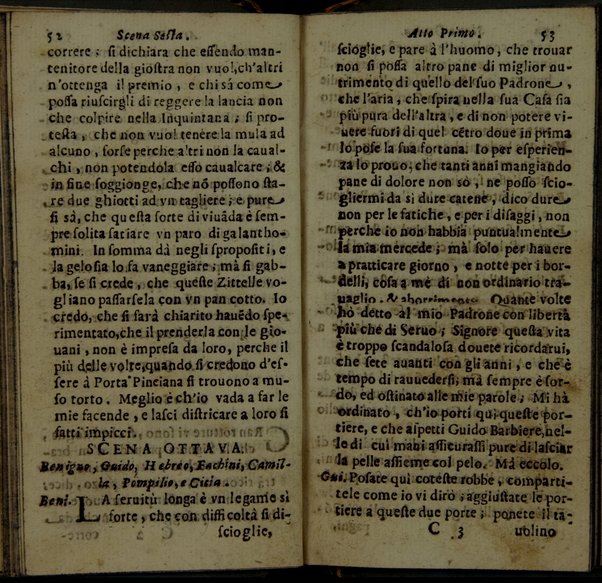 52 Scena Sesta.
correre; si dichiara che essendo man-
tenitore della giostra non vuol,ch'altri
n'ottenga il premio, e chi sà come
possa riuscirgli di reggere la lancia non
che colpire nella Inquintana; si pro-
testa, che non vuol tenere la mula ad
alcuno, forse perche altri non la caual-
chi, non potendola esso caualcare; &
in fine soggionge, che nõ possono sta-
re due ghiotti ad vn tagliere; e pure
si sà, che questa sorte di viuãda è sem-
pre solita satiare vn paro di galantho-
mini. In somma dà negli spropositi, e
la gelosia lo fa vaneggiare; mà si gab-
ba, se si crede, che queste Zittelle vo-
gliano passarsela con vn pan cotto. Io
credo, che si sarà chiarito hauẽdo spe-
rimentato,che il prenderla con le gio-
uani, non è impresa da loro, perche il
più delle volte,quando si credono d'es-
sere à Porta Pinciana si trouono a mu-
so torto. Meglio è ch'io vada a far le
mie facende, e lasci districare a loro si
fatti impicci.
SCENA OTTAVA.
Benigno, Guido, Hebreo, Fachini, Camil-
la, Pompilio, e Citia.
Beni. LA seruitù longa è vn legame si
forte, che con difficoltà si di-
scioglie,
Atto Primo. 53
scioglie, e pare à l'huomo, che trouar
non si possa altro pane di miglior nu-
trimento di quello del suo Padrone,
che l'aria, che spira nella sua Casa sia
più pura dell'altra, e di non potere vi-
uere fuori di quel cẽtro doue in prima
lo pose la sua fortuna. Io per esperien-
za lo prouo; che tanti anni mangiando
pane di dolore non sò, ne posso scio-
gliermi da si dure catene, dico dure
non per le fatiche, e per i disaggi, non
perche io non habbia puntualmente
la mia mercede; mà solo per hauere
a pratticare giorno, e notte per i bor-
delli, cosa a me di non ordinario tra-
uaglio, & abborrimento. Quante volte
hò detto al mio Padrone con libertà
più che di Seruo; Signore questa vita
è troppo scandalosa douete ricordarui,
che sete auanti con gli anni, e che è
tempo di rauuedersi; mà sempre è sor-
do, ed ostinato alle mie parole; Mi hà
ordinato, ch'io porti quì queste por-
tiere, e che aspetti Guido Barbiere,nel-
le di cui mani assicurassi pure di lasciar
la pelle assieme col pelo. Mà eccolo.
Gui. Posate quì coteste robbe, comparti-
tele come io vi dirò; aggiustate le por-
tiere a queste due porte; ponete il ta-
C 3 uolino